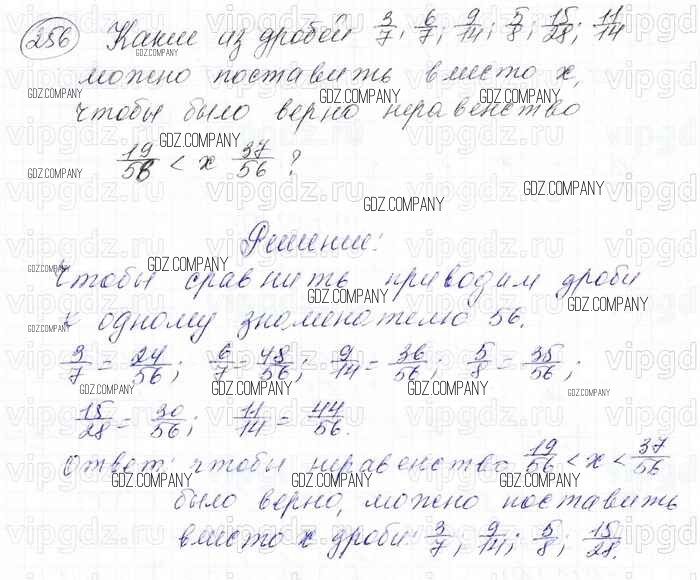 256 Какие из дробей 3/7; 6/7; 9/14; 5/8; 15/28; 11/14
можно поставить вместо x,
чтобы было верно неравенство
19/56 < x 37/56 ?
Решение:
Чтобы сравнить приводим дроби
к одному знаменателю 56.
3/7 = 24/56; 6/7 = 48/56; 9/14 = 36/56; 5/8 = 35/56;
15/28 = 30/56; 11/14 = 44/56.
Ответ: чтобы неравенство 19/56 < x < 37/56
было верно, можно поставить
вместо x дроби: 3/7; 9/14; 5/8; 15/28.
GDZ.COMPANY
vipgdz.ru